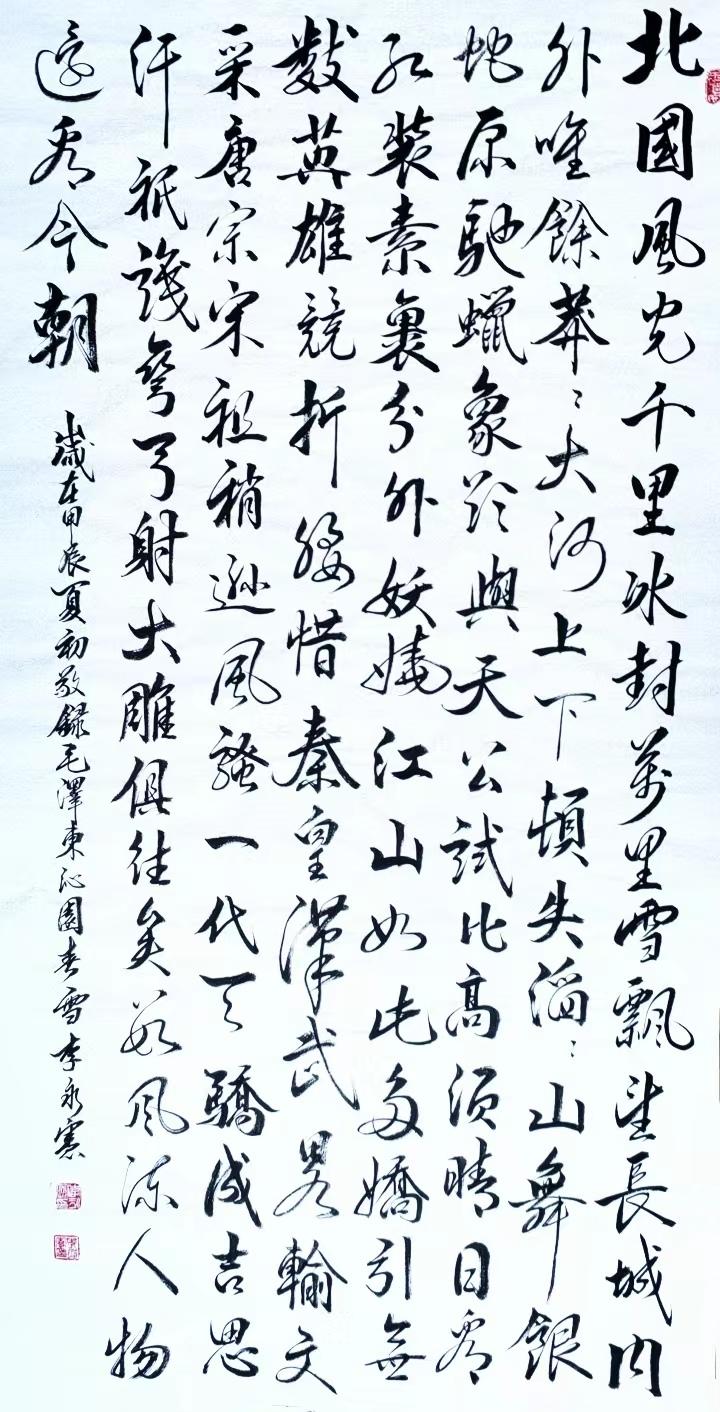 北國風光千里冰封萬里雪飄望長城內
外唯餘莽〻大河上下頓失滔〻山舞銀
蛇原馳蠟象欲與天公試比高須晴日看
紅裝素裹分外妖嬈江山如此多嬌引無
數英雄競折腰惜秦皇漢武畧輸文
采唐宗宋祖稍遜風騷一代天驕成吉思
汗祇識彎弓射大雕俱往矣數風流人物
還看今朝
歲在甲辰夏初敬錄毛澤東沁園春雪李永憲